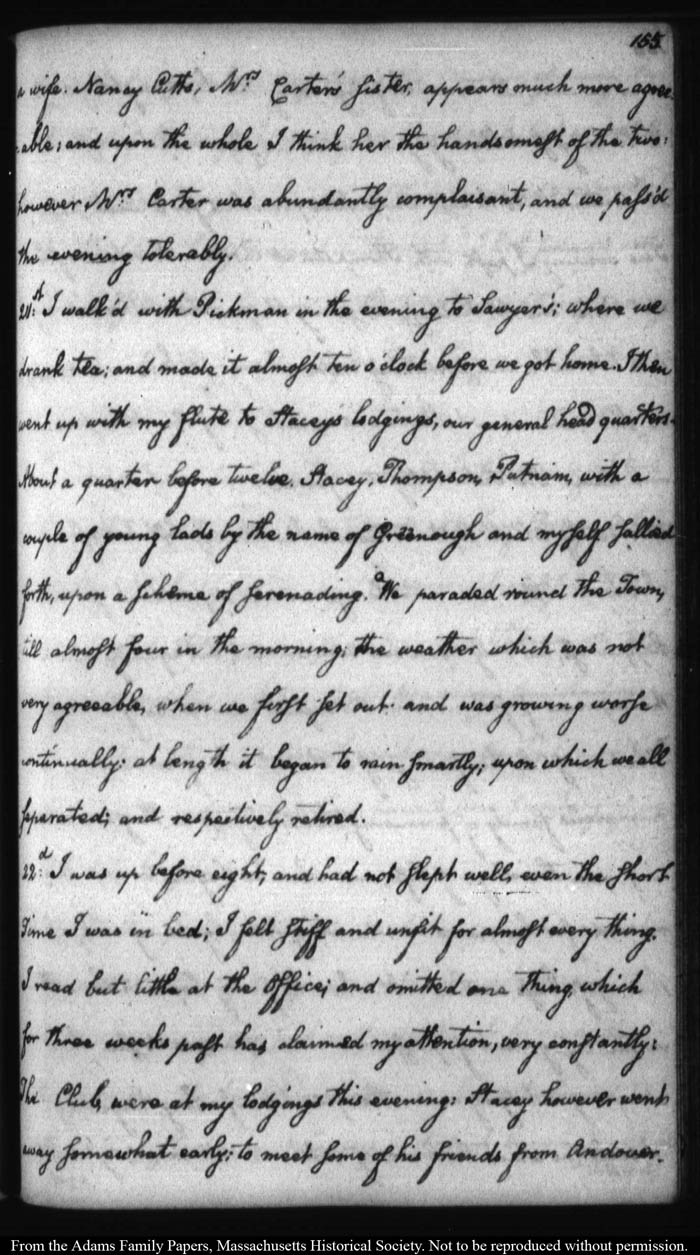 155
a wife. Nancy Cutts, Mrs Carter's sister, appears much more agree-
able; and upon the whole I think her the handsomest of the two:
however Mrs Carter was abundantly complaisant, and we pass'd
the evening tolerably.
21:st I walk'd with Pickman in the evening to Sawyer's; where we
drank tea; and made it almost ten o'clock before we got home. I then
went up with my flute to Stacey's lodgings, our general head quarters.
About a quarter before twelve, Stacey, Thompson, Putnam, with a
couple of young lads by the name of Greenough and myself sallied
forth, upon a scheme of serenading. We paraded round the Town,
till almost four in the morning: the weather which was not
very agreeable, when we first set out. and was growing worse
continually: at length it began to rain smartly; upon which we all
seperated; and respectively retired.
22:d I was up before eight, and had not slept well, even the short
time I was in bed; I felt stiff and unfit for almost every thing.
I read but little at the Office; and omitted one thing, which
for three weeks past has claimed my attention, very constantly:
The Club, were at my lodgings this evening: Stacey however went
away somewhat early; to meet some of his friends from Andover.
From the Adams Family Papers, Massachusetts Historical Society. Not to be reproduced without permission.